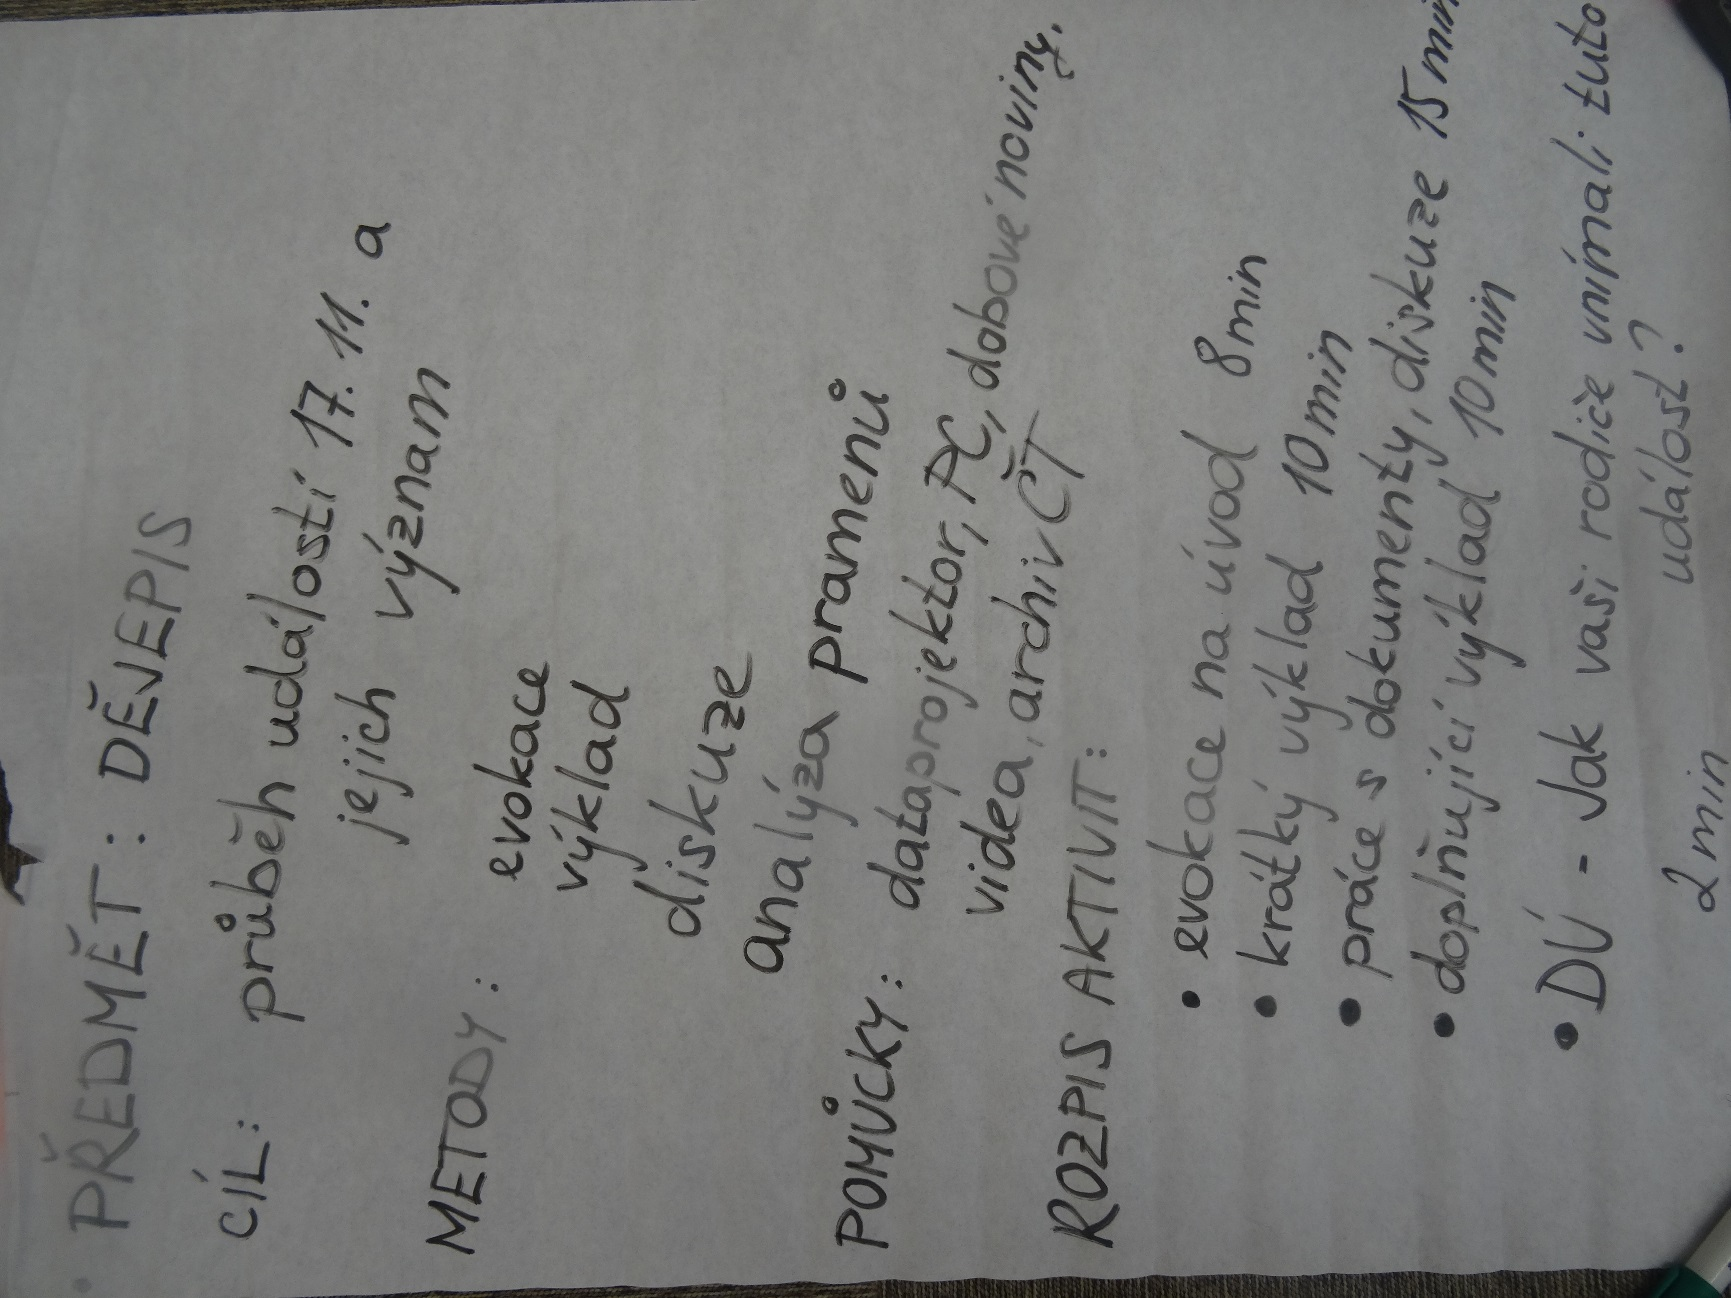 PŘEDMĚT: DĚJEPIS
CÍL: průběh událostí 17. 11. a
jejich význam
METODY: evokace
výklad
diskuze
analýza pramenů
POMŮCKY: dataprojektor, PC, dobové noviny,
videa, archiv ČT
ROZPIS AKTIVIT:
• evokace na úvod 8 min
• krátký výklad 10 min
• práce s dokumenty, diskuze 15 min
• doplňující výklad 10 min
• DÚ - Jak vaši rodiče vnímali tuto
událost?
2 min